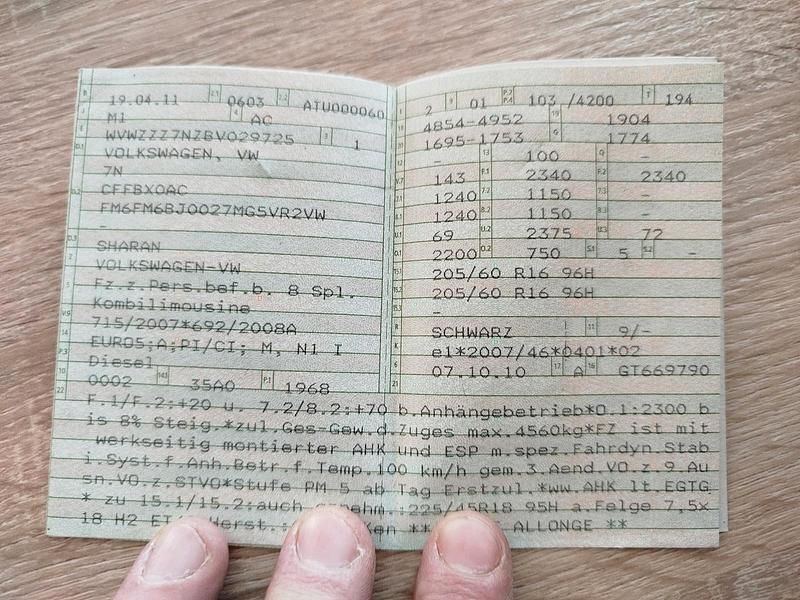 B 19.04.11 2.1 0603 2.2 ATU000060
J M1 4 AC
E WVWZZZ7NZBV029725 3 1
D.1 VOLKSWAGEN, VW
7N
D.2 CFFBX0AC
FM6FM6BJ0027MG5VR2VW
-
D.3 SHARAN
2 VOLKSWAGEN-VW
5 Fz.z.Pers.bef.b. 8 Spl.
Kombilimousine
V.9 715/2007*692/2008A
14 EURO5;A;PI/CI; M, N1 I
P.3 Diesel
10 0002 14.1 35A0 P.1 1968
L 2 9 01 P.2 P.4 103 /4200 T 194
18 4854-4952 19 1904
20 1695-1753 G 1774
12 - 13 100 Q -
143 F.1 2340 F.2 2340
7.1 1240 7.2 1150 7.3 -
8.1 1240 8.2 1150 8.3 -
U.1 69 U.2 2375 U.3 72
O.1 2200 O.2 750 S.1 5 S.2 -
15.1 205/60 R16 96H
15.2 205/60 R16 96H
15.3 -
R SCHWARZ 11 9/-
K e1*2007/46*0401*02
6 07.10.10 17 A 16 GT669790
21
22 F.1/F.2:+20 u. 7.2/8.2:+70 b.Anhängebetrieb*O.1:2300 b
is 8% Steig.*zul.Ges-Gew.d.Zuges max.4560kg*FZ ist mit
werkseitig montierter AHK und ESP m.spez.Fahrdyn.Stab
i.Syst.f.Anh.Betr.f.Temp.100 km/h gem.3.Aend.VO.z.9.Au
sn.VO.z.STVO*Stufe PM 5 ab Tag Erstzul.*ww.AHK lt.EGTG
* zu 15.1/15.2:auch nehm.:225/45R18 95H a.Felge 7,5x
18 H2 ** ALLONGE **